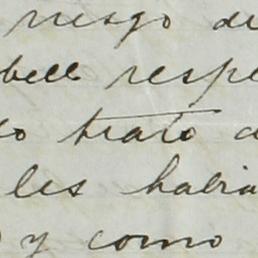 riesgo de
bell respe
do trato d
les habia
y como